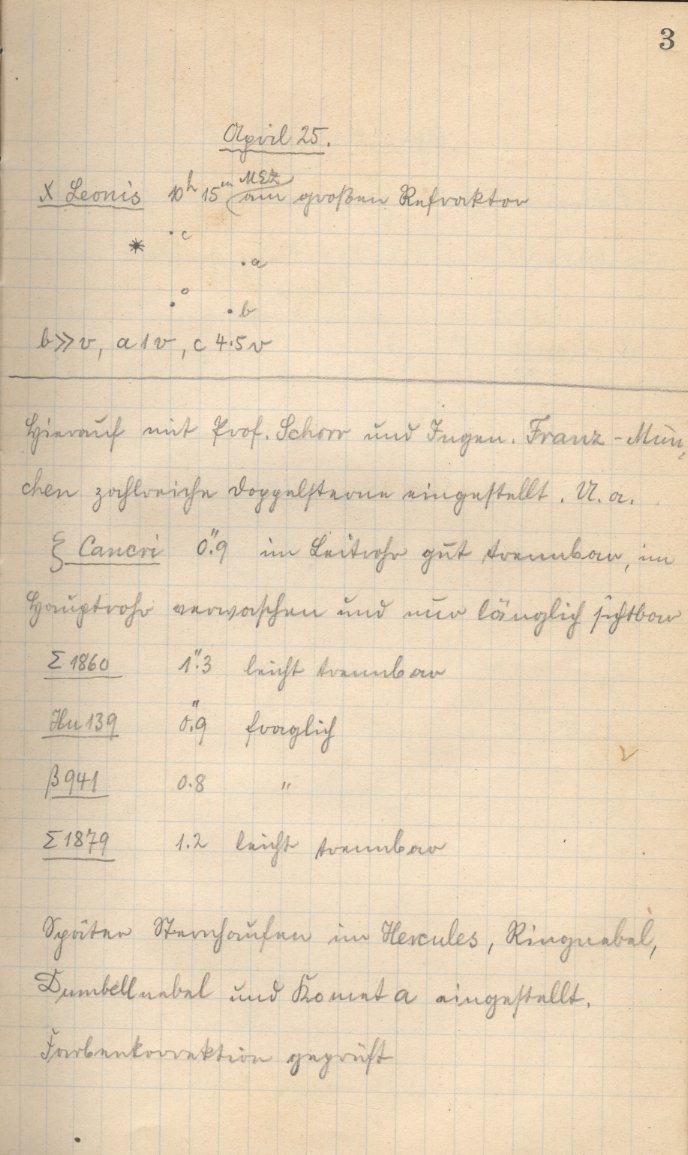 3
April 25.
X Leonis 10h 15m MEZ am großen Refraktor
c
a
o
b
b≫v, a1v, c4.5v
Hierauf mit Prof. Schorr und Ingen. Franz-Mün-
chen zahlreiche Doppelsterne eingestellt. U. a.
ξ Cancri 0".9 im Leitrohr gut trennbar, im
Hauptrohr verwaschen und nur länglich sichtbar
Σ 1860 1".3 leicht trennbar
Hu 139 0".9 fraglich
β 941 0.8 "
Σ 1879 1.2 leicht trennbar
Später Sternhaufen im Hercules, Ringnebel,
Dumbellnebel und Komet a eingestellt.
Farbenkorrektion geprüft